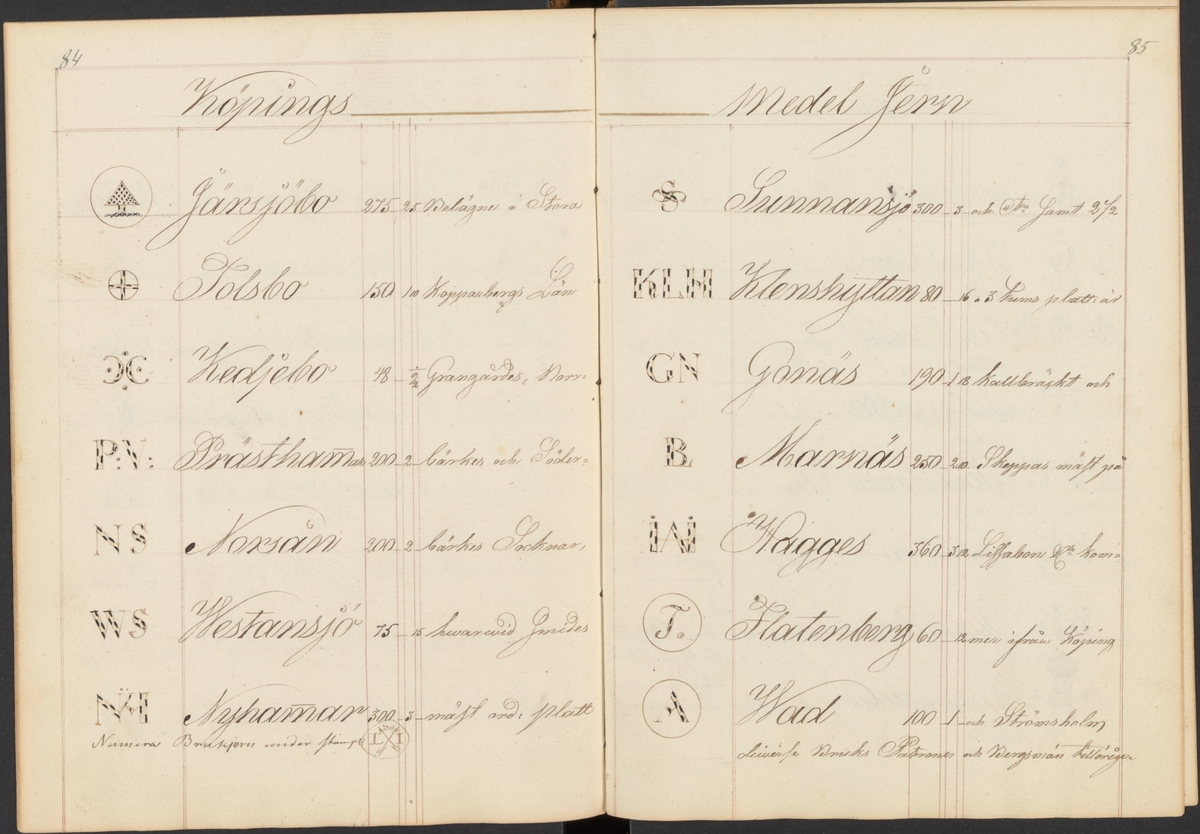 84
Köpings
Järsjöbo 275 25 Belägne i Stora
Tolsbo 150 1 10 Kopparbergs Län
ƆC Kedjebo 48 ½ Grangärdes, Norr=
P:V: Prästhamar 200 2 bärkes och Söder=
NS Norsån 200 2 bärkes Socknar,
WS Westansjö 75 15 hwarwid Smides
NH Nyhamar 300 3 mäst ord: platt
Numera Bruksjern under stamp L I
85
Medel Jern
S Sunnansjö 300 3 och Samt 2½
KLH Klenshyttan 80 16 a 3 tums platt: är
GN Gonäs 190 1 18 kallbräckt och
B Marnäs 250 2 10 Skeppas mäst på
W Hagges 360 3 12 Lissabon kom=
T. Flatenberg 60 12 mer ifrån Köping
A Wad 100 1 och Strömsholm
diverse Bruks Patroner och Bergsmän tillhörige